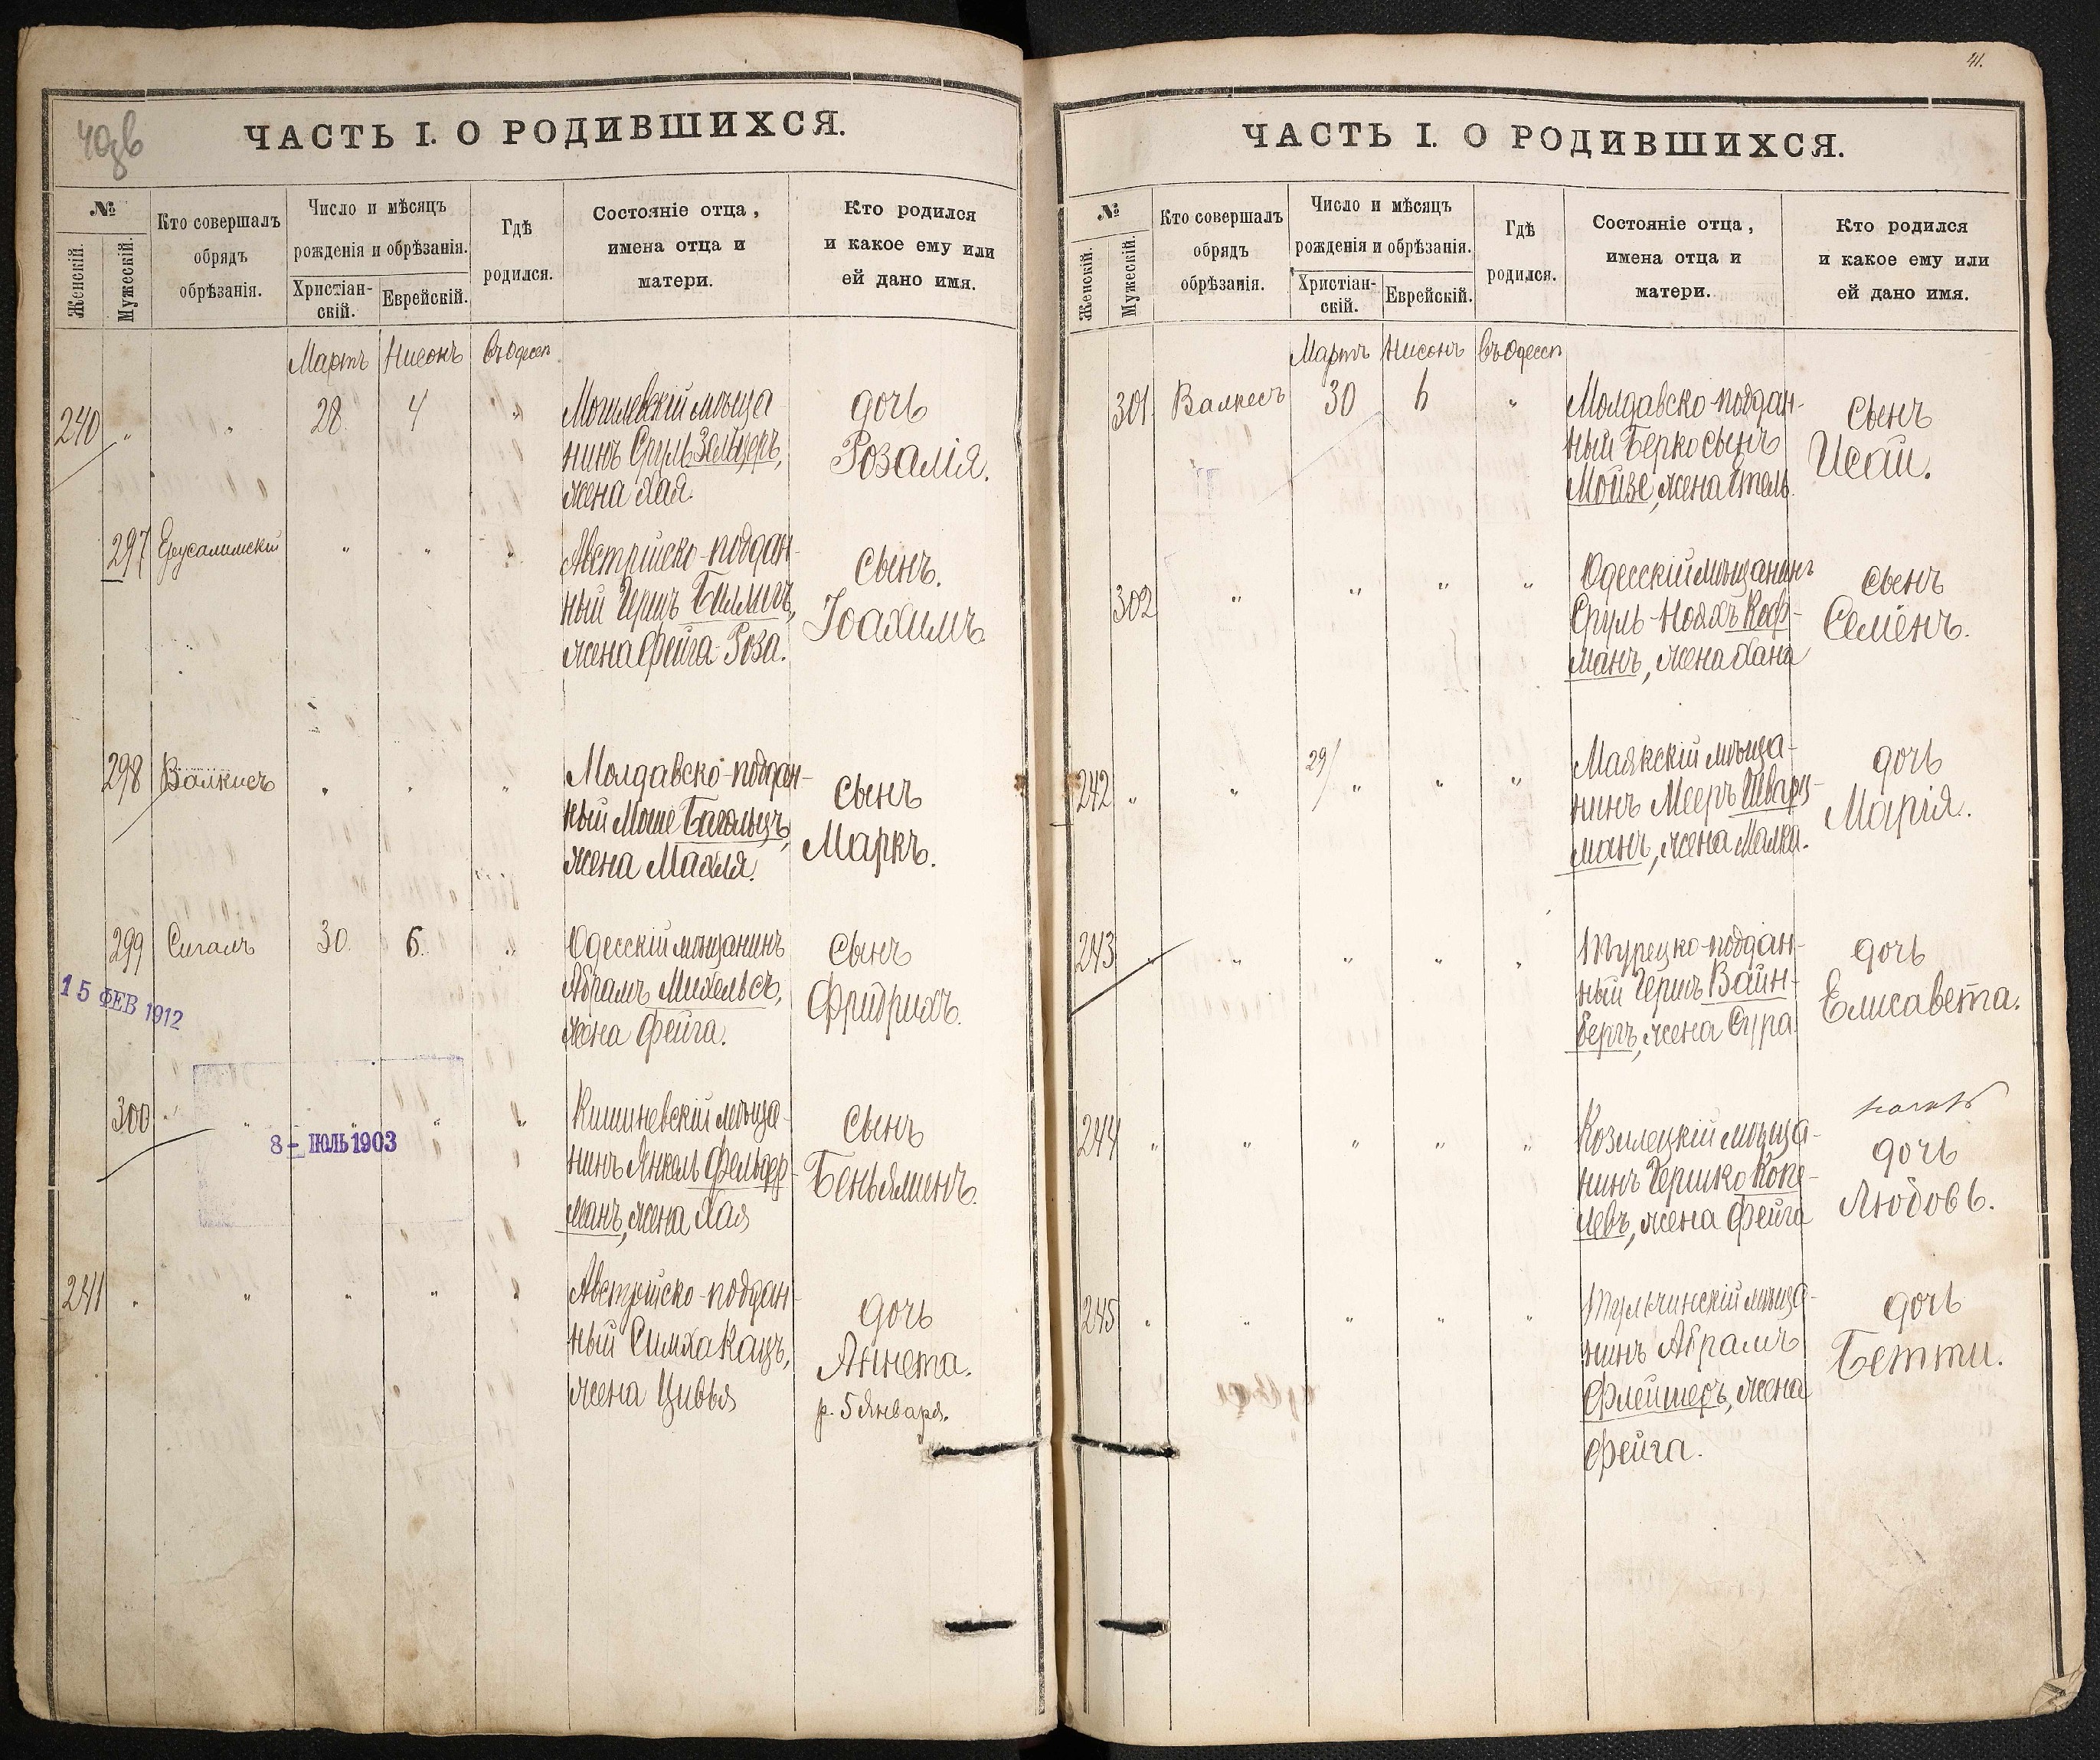 40об
ЧАСТЬ I. О РОДИВШИХСЯ.
№
Женскій.
Мужескій.
Кто совершалъ
обрядъ
обрѣзанія.
Число и мѣсяцъ
рожденія и обрѣзанія.
Христіан-
скій.
Еврейскій.
Гдѣ
родился.
Состояніе отца,
имена отца и
матери.
Кто родился
и какое ему или
ей дано имя.
Мартъ Нисонъ въ Одессѣ
240 " " 28. 4 "
Могилевскій мѣща-
нинъ Сруль Зельцеръ,
жена Хая.
дочь
Розалія.
297 Ерусалимскій " " "
Австрійско-поддан-
ный Гершъ Биллигъ,
жена Фейга-Роза.
сынъ.
Іоахимъ
298 Валкисъ " " "
Молдавско-поддан-
ный Моше
жена Махля.
сынъ
Маркъ.
299 Сигалъ 30. 6. "
Одесскій мѣщанинъ
Абрамъ Михельсъ,
жена Фейга.
сынъ
Фридрихъ.
15 ФЕВ 1912
300 " " " " "
8- ІЮЛЬ 1903
Кишиневскій мѣща-
нинъ Янкель Фельдер-
манъ, жена Хая
сынъ
Беньяминъ.
241 " " " " "
Австрійско-поддан-
ный Симха Кацъ,
жена Цивья
дочь
Аннета.
р. 5 Января.
41.
ЧАСТЬ I. О РОДИВШИХСЯ.
№
Женскій.
Мужескій.
Кто совершалъ
обрядъ
обрѣзанія.
Число и мѣсяцъ
рожденія и обрѣзанія.
Христіан-
скій.
Еврейскій.
Гдѣ
родился.
Состояніе отца,
имена отца и
матери.
Кто родился
и какое ему или
ей дано имя.
Мартъ Нисонъ въ Одессѣ
301 Валкесъ 30 6 "
Молдавско-поддан-
ный Берко сынъ
Мойзе, жена Этель.
сынъ
Исай.
302 " " " "
Одесскій мѣщанинъ
Сруль-Нояхъ Коф-
манъ, жена Хана
сынъ
Семёнъ.
242 " " 29/ " " "
Маякскій мѣща-
нинъ Мееръ Шварц-
манъ, жена Малка.
дочь
Марія.
243 " " " " "
Турецко-поддан-
ный Гершъ Вайн-
бергъ, жена Сура.
дочь
Елисавета.
244 " " " " "
Козелецкій мѣща-
нинъ Гершко Копе-
левъ, жена Фейга
дочь
Любовь.
245 " " " " "
Тульчинскій мѣща-
нинъ Абрамъ
Флейшеръ, жена
Фейга.
дочь
Бетти.